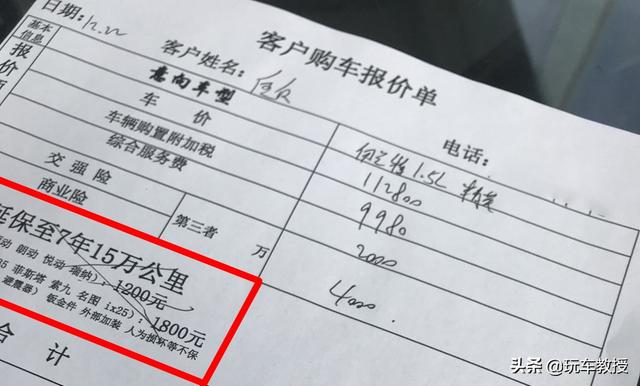 日期: 12.22
客户购车报价单
基本信息
客户姓名:
电话:
意向车型
1.5L
报价
车价
112800
车辆购置附加税
9980
综合服务费
2000
交强险
商业险
第三者
万
4000
延保至7年15万公里
动 朗动 悦动 瑞纳): 1200元
35 菲斯塔 索九 名图 ix25): 1800元
避震器) 钣金件 外部加装 人为损坏等不保
合计
头条 @玩车教授